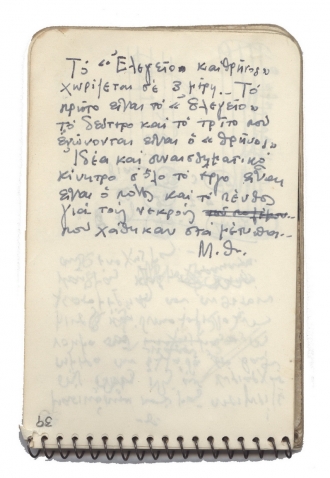 Τὸ «Ἐλεγεῖο» καὶ θρῆνος
χωρίζεται σὲ 3 μέρη.. Τὸ
πρῶτο εἶναι τὸ «Ἐλεγεῖο»
τὸ δεύτερο καὶ τὸ τρίτο ποὺ
ἑνώνονται εἶναι ὁ «Θρῆνος»
Ἰδέα καὶ συναισθηματικὸ
κίνητρο σ' ὅλο τὸ ἔργο εἶναι
εἶναι ὁ πόνος καὶ τὸ πένθος
γιὰ τοὺς νεκροὺς
ποὺ χάθηκαν στὰ μέτωπα..
Μ. Θ.
39